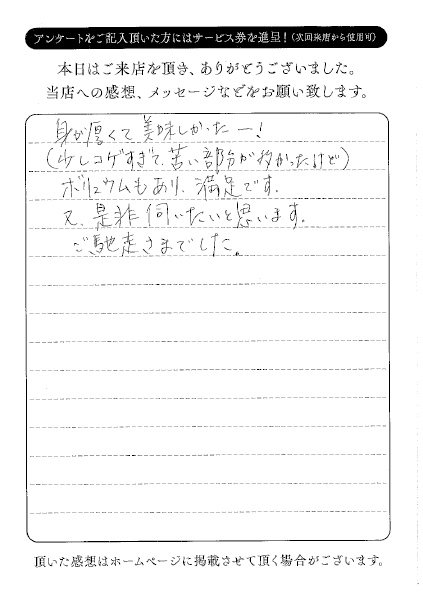 アンケートをご記入頂いた方にはサービス券を進呈！(次回来店から使用可)
本日はご来店を頂き、ありがとうございました。
当店への感想、メッセージなどをお願い致します。
身が厚くて美味しかったー！
(少しコゲすぎて、苦い部分が多かったけど)
ボリュウムもあり、満足です。
又、是非伺いたいと思います。
ご馳走さまでした。
頂いた感想はホームページに掲載させて頂く場合がございます。